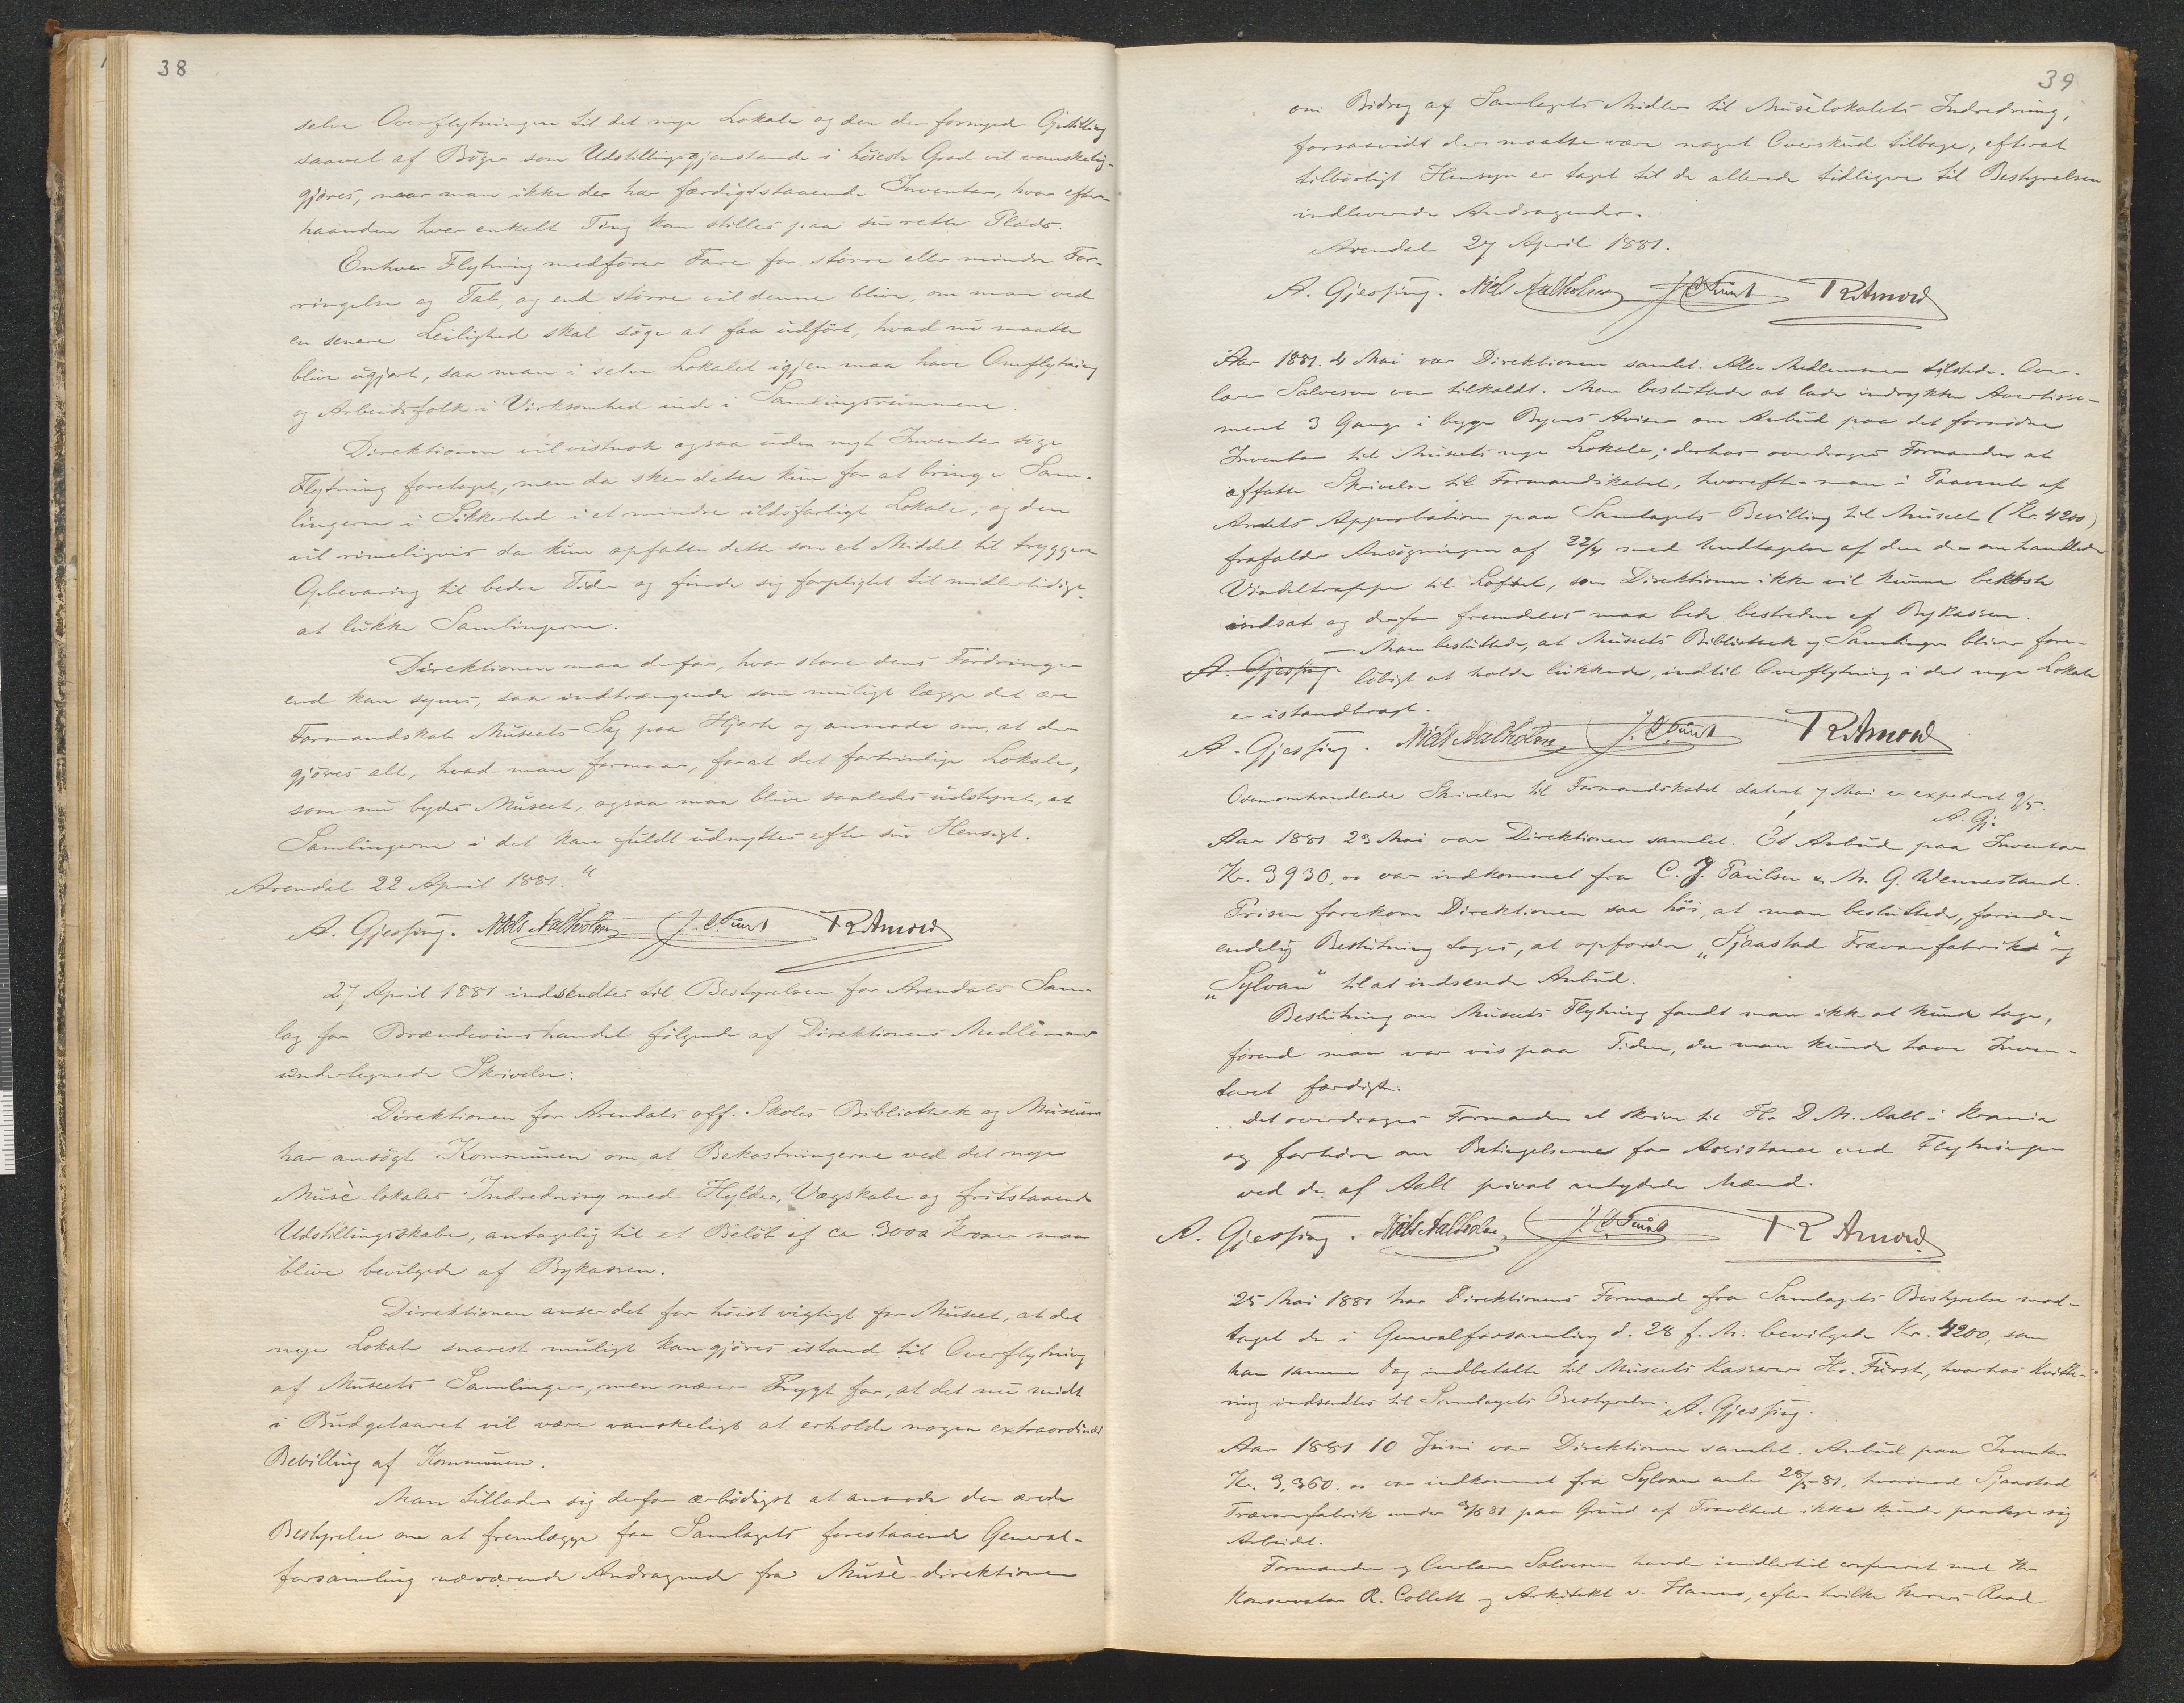 38
selve Overflytningen til det nye Lokale og den der fornyede Opstilling
saavel af Bøger som Udstillingsgjenstande i høieste Grad vil vanskelig-
gjøres, naar man ikke der har færdigstaaende Inventar, hvor efter-
haanden hver enkelt Ting kan stilles paa sin rette Plads.
Enhver Flytning medfører Fare for større eller mindre For-
ringelse og Tab, og end større vil denne blive, om man ved
en senere Leilighed skal søge at faa udført, hvad nu maatte
blive ugjort, saa man i selve Lokalet igjen maa have Omflytning
og Arbeidsfolk i Virksomhed inde i Samlingsrummene.
Direktionen vil vistnok ogsaa uden nyt Inventar søge
Flytning foretaget, men da sker dette kun for at bringe Sam-
lingerne i Sikkerhed i et mindre ildsfarligt Lokale, og den
vil rimeligvis da kun opfatte dette som et Middel til tryggere
Opbevaring til bedre Tider og finde sig forpligtet til midlertidigt
at lukke Samlingerne.
Direktionen maa derfor, hvor store dens Fordringer
end kan synes, saa indtrængende som muligt lægge det ære
Formandskab Museets Sag paa Hjerte og anmode om, at der
gjøres alt, hvad man formaar, forat det fortrinlige Lokale,
som nu bydes Museet, ogsaa maa blive saaledes udstyret, at
Samlingerne i det kan fuldt udnyttes efter sin Hensigt.
Arendal 22 April 1881."
A. Gjessing. Niels Aalholm J. C. Fürst T R Arnord
27 April 1881 indsendtes til Bestyrelsen for Arendals Sam-
lag for Brændevinshandel følgende af Direktionens Medlemmer
undertegnede Skrivelse:
Direktionen for Arendals off. Skoles Bibliothek og Museum
har ansøgt Kommunen om, at Bekostningerne ved det nye
Musè-lokales Indredning med Hylder, Vægskabe og fritstaaende
Udstillingsskabe, antagelig til et Beløb af ca 3000 Kroner maa
blive bevilgede af Bykassen.
Direktionen anser det for høist vigtigt for Museet, at det
nye Lokale snarest muligt kan gjøres istand til Overflytning
af Museets Samlinger, men nærer Frygt for, at det nu midt
i Budgetaaret vil være vanskeligt at erholde nogen extraordinær
Bevilling af Kommunen.
Man tillader sig derfor ærbødigst at anmode den ærede
Bestyrelse om at fremlægge for Samlagets forestaaende General-
forsamling nærværende Andragende fra Musè-direktionen
39
om Bidrag af Samlagets Midler til Musèlokalets Indredning,
forsaavidt der maatte være noget Overskud tilbage, efterat
tilbørligt Hensyn er taget til de allerede tidligere til Bestyrelsen
indleverede Andragender.
Arendal 27 April 1881.
A. Gjessing. Niels Aalholm J C Fürst T R Arnord
Aar 1881. 4 Mai var Direktionen samlet. Alle Medlemmer tilstede. Over-
lærer Salvesen var tilkaldt. Man besluttede at lade indrykke Avertisse-
ment 3 Gange i begge Byens Aviser om Anbud paa det fornødne
Inventar til Museets nye Lokale; derhos overdroges Formanden at
affatte Skrivelse til Formandskabet, hvorefter man i Paavente af
Amtets Approbation paa Samlagets Bevilling til Museet (Kr. 4200)
frafalder Ansøgningen af 22/4 med Undtagelse af den der omhandlede
Vindeltrappe til Loftet, som Direktionen ikke vil kunne bekoste
indsat og derfor fremdeles maa bede bestreden af Bykassen.
— Man besluttede, at Museets Bibliothek og Samlinger bliver fore-
A. Gjessing. løbigt at holde lukkede, indtil Overflytning i det nye Lokale
er istandbragt.
A. Gjessing. Niels Aalholm J. C. Fürst T R Arnord
Ovenomhandlede Skrivelse til Formandskabet dateret 7 Mai er expederet 9/5.
A. Gj.
Aar 1881 23 Mai var Direktionen samlet. Et Anbud paa Inventar
Kr. 3930,00 var indkommet fra C. J. Paulsen & M. G. Wennestand.
Prisen forekom Direktionen saa høi, at man besluttede, førinden
endelig Beslutning toges, at opfordre "Sjaastad Trævarefabrik" og
"Sylvan" til at indsende Anbud.
Beslutning om Museets Flytning fandt man ikke at kunde tage,
førend man var vis paa Tiden, da man kunde have Inven-
taret færdigt.
Det overdroges Formanden at skrive til Hr D. M. Aall i Krania
og forhøre om Betingelserne for Assistance ved Flytningen
ved de af Aall privat antydede Mænd.
A. Gjessing. Niels Aalholm, J. C. Fürst T R Arnord
25 Mai 1881 har Direktionens Formand fra Samlagets Bestyrelse mod-
taget de i Generalforsamling d. 28 f. M. bevilgede Kr. 4200, som
han samme Dag indbetalte til Museets Kasserer Hr. Fürst, hvorhos Kvitte-
ring indsendtes til Samlagets Bestyrelse. A. Gjessing.
Aar 1881 10 Juni var Direktionen samlet. Anbud paa Inventar
Kr. 3,360.00 var indkommet fra Sylvan under 28/5-81, hvorimod Sjaastad
Trævarefabrik under 3/6 81 paa Grund af Travlhed ikke kunde paatage sig
Arbeidet.
Formanden og Overlærer Salvesen havde imidlertid confereret med Hr
Konservator R. Collett og Arkitekt v. Hanno, efter hvilke Herrers Raad